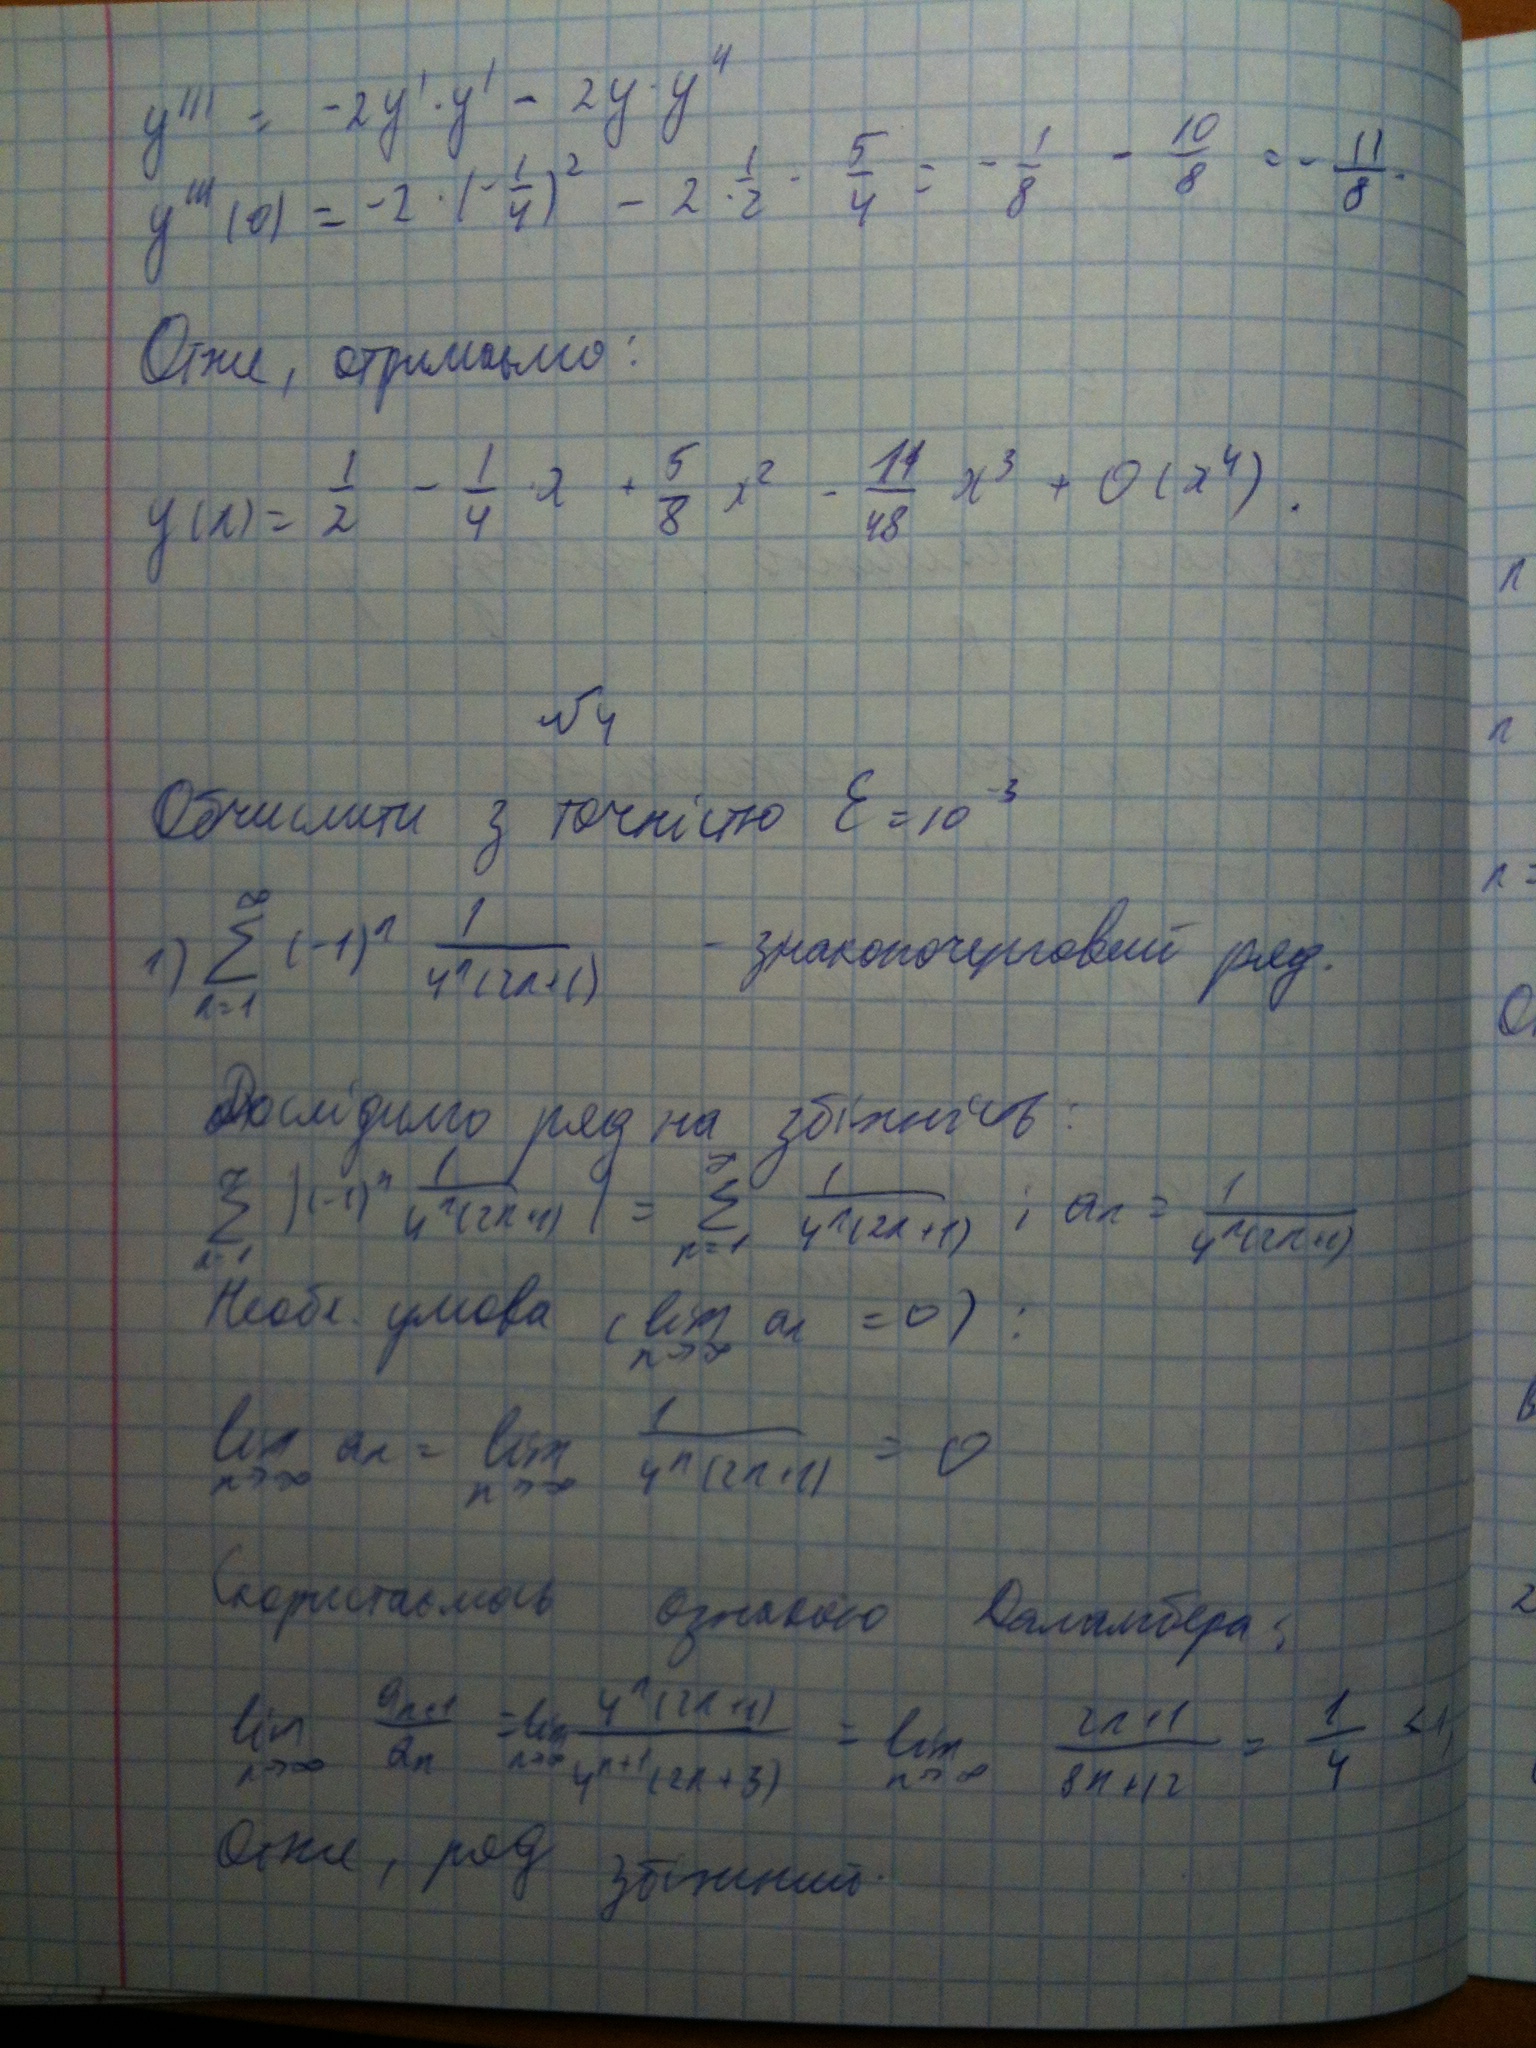 y''' = -2y'·y' - 2y·y''
y'''(0) = -2·(-1/4)² - 2·1/2·5/4 = -1/8 - 10/8 = -11/8.
Отже, отримаємо:
y(x) = 1/2 - 1/4·x + 5/8 x² - 11/48 x³ + O(x⁴).
№4
Обчислити з точністю ε = 10⁻³
1) ∑_{n=1}^{∞} (-1)ⁿ 1/(4ⁿ(2n+1)) - знакопочерговий ряд.
Дослідимо ряд на збіжність:
∑_{n=1}^{∞} |(-1)ⁿ 1/(4ⁿ(2n+1))| = ∑_{n=1}^{∞} 1/(4ⁿ(2n+1)) ; aₙ = 1/(4ⁿ(2n+1))
Необх. умова (lim_{n→∞} aₙ = 0) :
lim_{n→∞} aₙ = lim_{n→∞} 1/(4ⁿ(2n+1)) = 0
Скористаємось ознакою Даламбера:
lim_{n→∞} aₙ₊₁/aₙ = lim_{n→∞} 4ⁿ(2n+1)/(4ⁿ⁺¹(2n+3)) = lim_{n→∞} (2n+1)/(8n+12) = 1/4 < 1,
Отже, ряд збіжний.